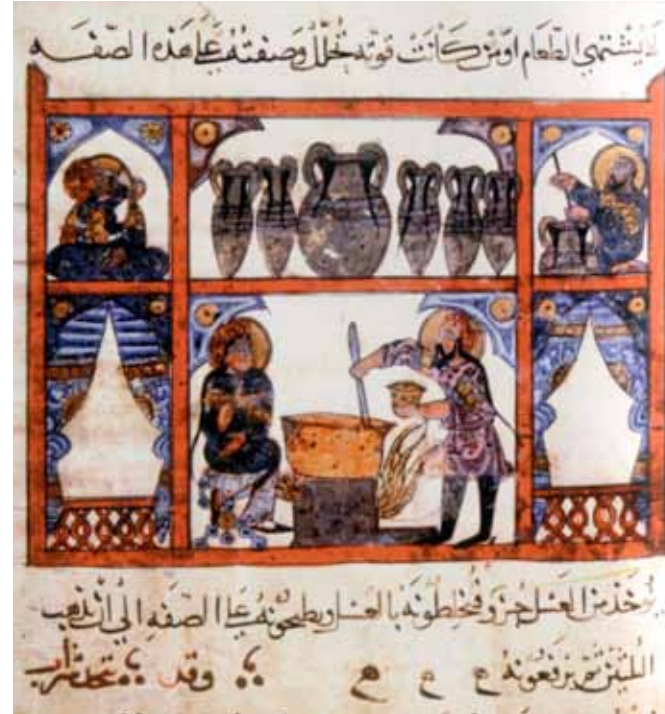 لا يشتهي الطعام او من كانت قوته تخلل وصفته على هذه الصفه
يوخذ من العسل جزو فيخلطونه بالعسل ويطبخونه على الصفه الى ان يذهب
الثلثين ثم يرفعونه وقد يتخذ شراب